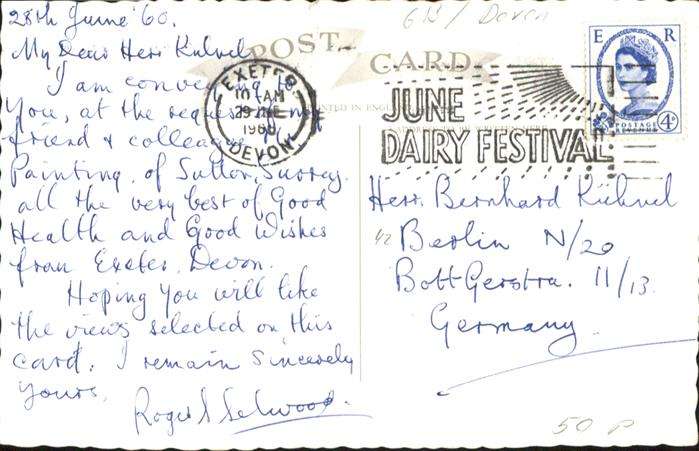 28th June '60.
My Dear Herr Kühnel
I am conveying to
you, at the request of my
friend & colleague
Painting, of Sutton, Surrey.
all the very best of Good
Health and Good Wishes
from Exeter, Devon.
Hoping you will like
the views selected on this
card. I remain Sincerely
yours,
Roger S Selwood.
GB/Devon
POST CARD
PRINTED IN ENGLAND
EXETER
10 AM
29 JNE
1960
DEVON
JUNE
DAIRY FESTIVAL
E R
POSTAGE
REVENUE
4D
Herr. Bernhard Kühnel
42 Berlin N/20
Bott Gerstra. 11/13.
Germany.
50 P